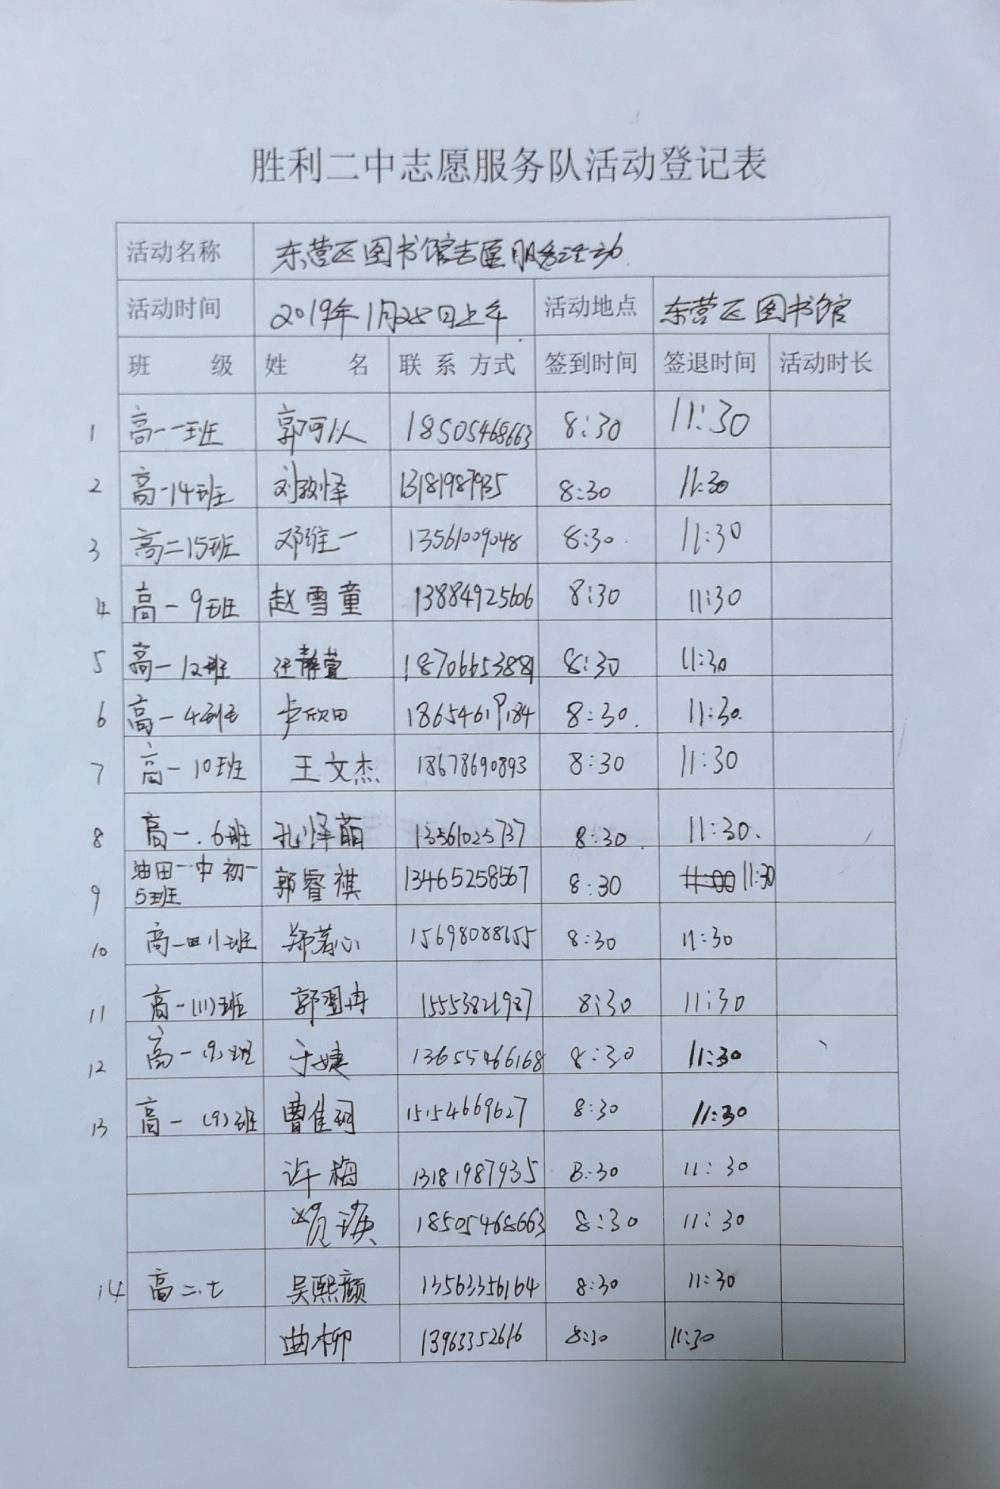 胜利二中志愿服务队活动登记表
活动名称 东营区图书馆志愿服务活动
活动时间 2019年1月28日上午 活动地点 东营区图书馆
班 级 姓 名 联系方式 签到时间 签退时间 活动时长
1 高一一班 郭可以 18505468663 8:30 11:30
2 高一14班 13181987935 8:30 11:30
3 高二15班 邓维一 13561009048 8:30 11:30
4 高一9班 赵雪童 13884925606 8:30 11:30
5 高一12班 汪静萱 18706653881 8:30 11:30
6 高一4班 卢欣田 18654619184 8:30 11:30
7 高一10班 王文杰 18678690893 8:30 11:30
8 高一.6班 孔怿萌 13561025737 8:30 11:30
9 油田一中初一5班 郭睿祺 13465258567 8:30 11:30
10 高一11班 郑茗心 15698088655 8:30 11:30
11 高一(11)班 郭翌冉 15553821987 8:30 11:30
12 高一(9)班 于婕 13655466168 8:30 11:30
13 高一(9)班 曹佳珂 15154669627 8:30 11:30
许梅 13181987935 8:30 11:30
18505468663 8:30 11:30
14 高二.七 吴熙颜 13563356164 8:30 11:30
曲柳 13963352616 8:30 11:30